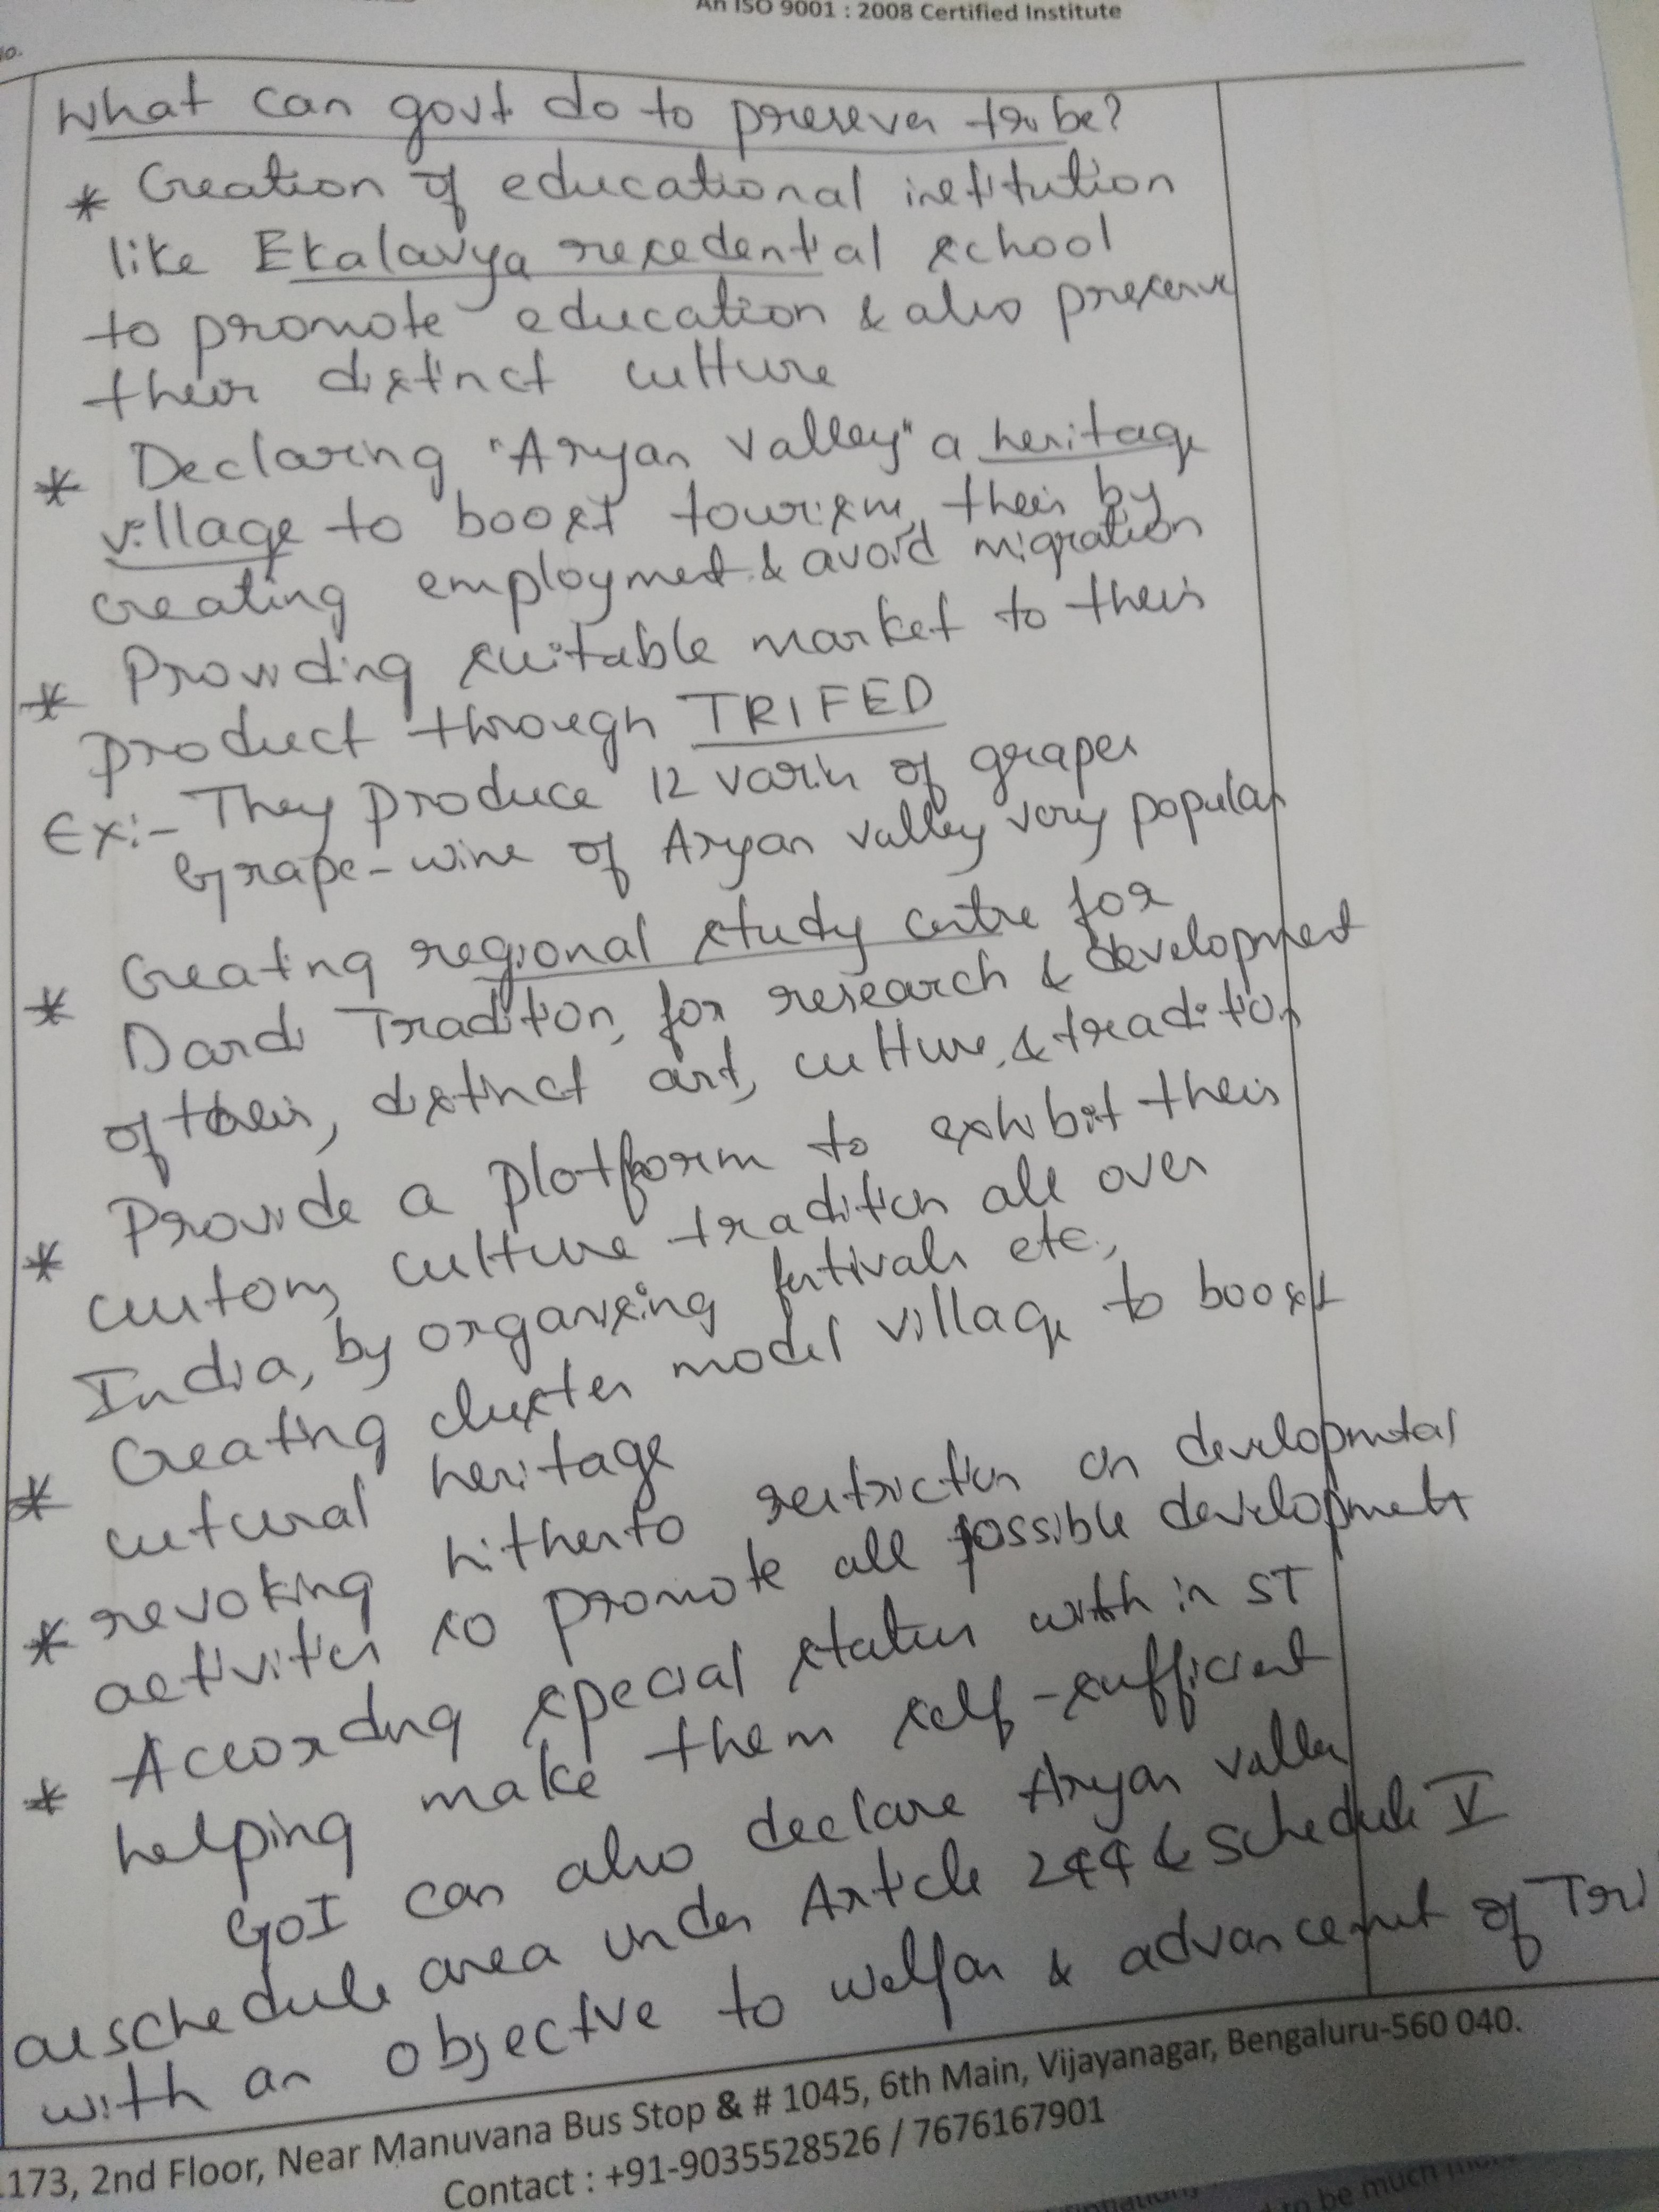 An ISO 9001 : 2008 Certified Institute
No.
What can govt do to presever tribe?
* Creation of educational institution
like Ekalavya resedential school
to promote education & also preserve
their distinct culture
* Declaring "Aryan Valley" a heritage
village to boost tourism, their by
creating employment & avoid migration
* Providing suitable market to their
product through TRIFED
Ex:- They produce 12 varin of grapes
Grape-wine of Aryan valley very popular
* Creating regional study centre for
Dardi Tradition, for research & development
of their, distinct art, culture, & tradition
* Provide a plotform to exhibit their
custom, culture tradition all over
India, by organising festivals etc.,
* Creating cluster model village to boost
cutural heritage
* revoking hitherto restriction on developmetal
activities so promote all possible development
* According special status with in ST
helping make them self-sufficient
GOI can also declare Aryan valley
as schedule area under Article 244 & Schedule V
with an objective to welfar & advancement of Tri
.173, 2nd Floor, Near Manuvana Bus Stop & # 1045, 6th Main, Vijayanagar, Bengaluru-560 040.
Contact : +91-9035528526 / 7676167901
to be much more